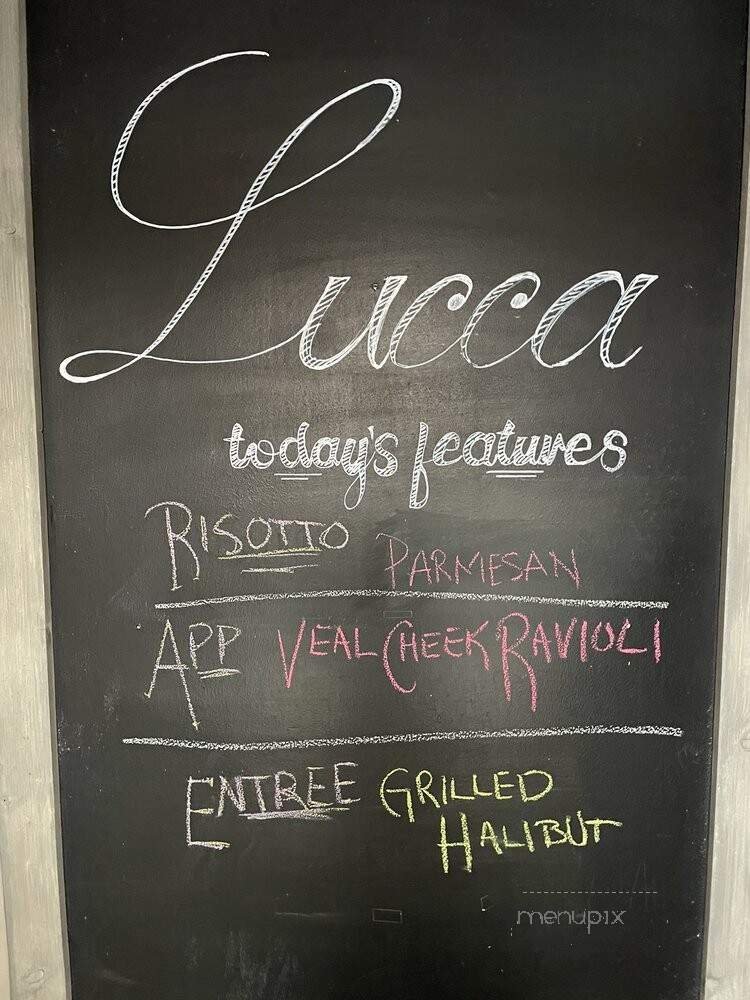 Lucca
today's features
RISOTTO PARMESAN
APP VEAL CHEEK RAVIOLI
ENTREE GRILLED
HALIBUT
menupix